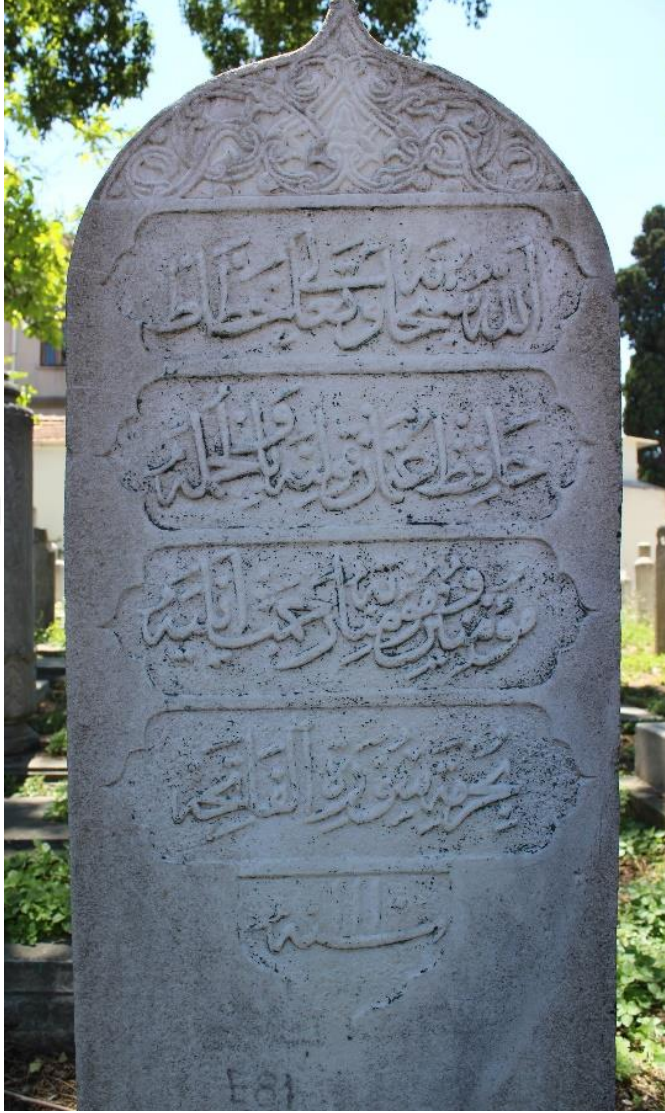 الله سبحانه وتعالى خطاط
حافظ عثمان قولنه و الجمله
مؤمنين و مؤمناته رحمت ايليه
بحرمة سورة الفاتحه
سنه
E81